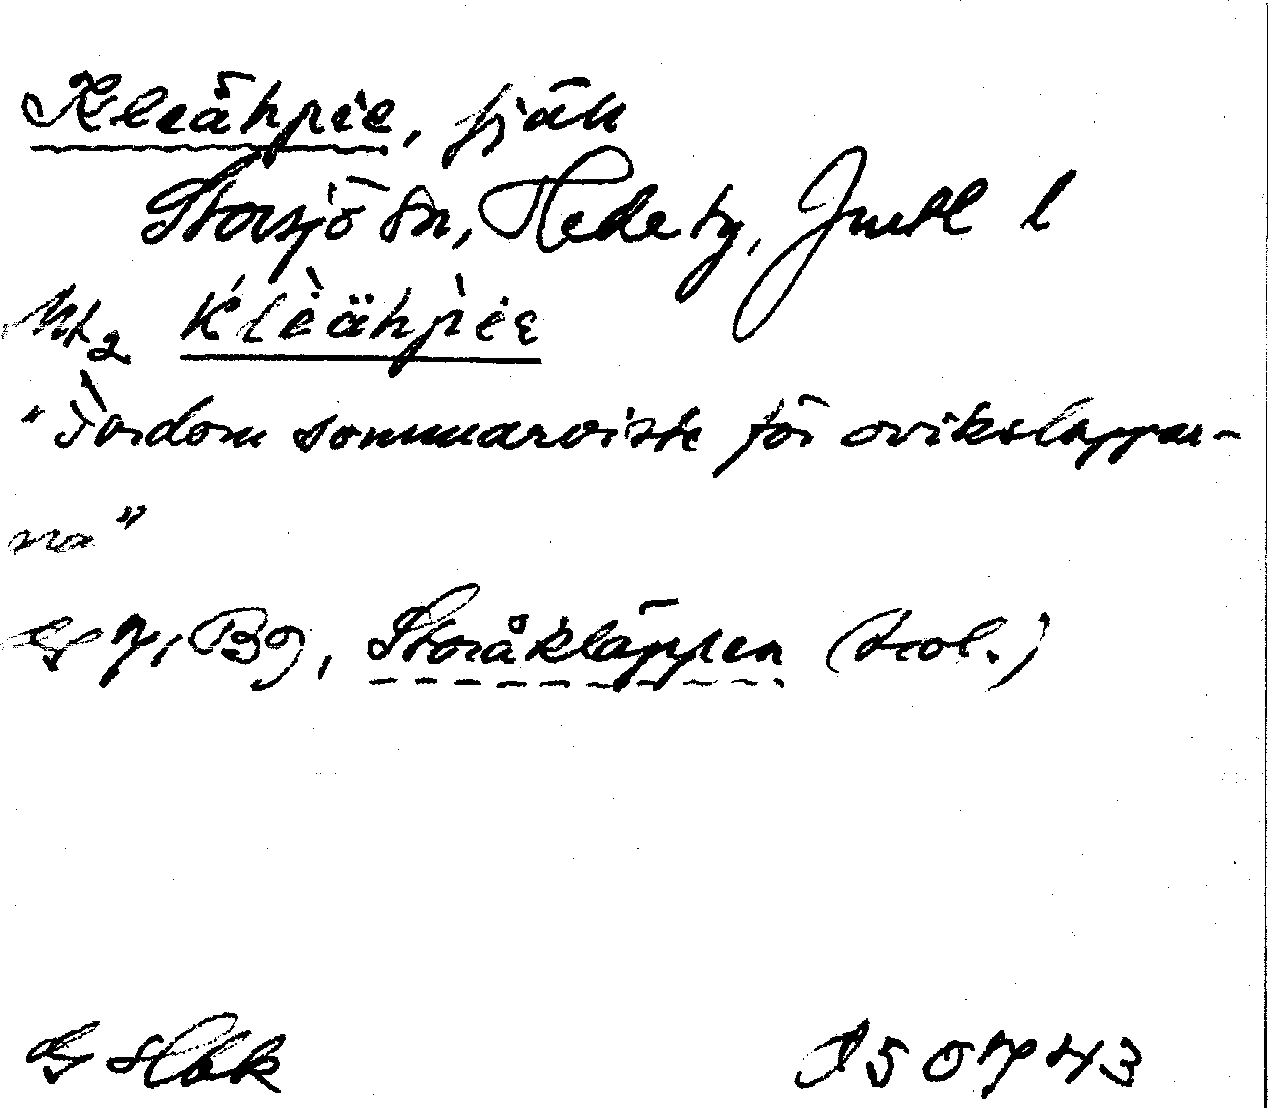 Kleähpie, fjäll
Storsjö sn, Hede tg, Jmtl l
Ht2 Kleähpie
"Fordom sommarviste för ovikslappar-
na"
G 7, Bg, Storåkläppen (trol.)
G Hbk 50743